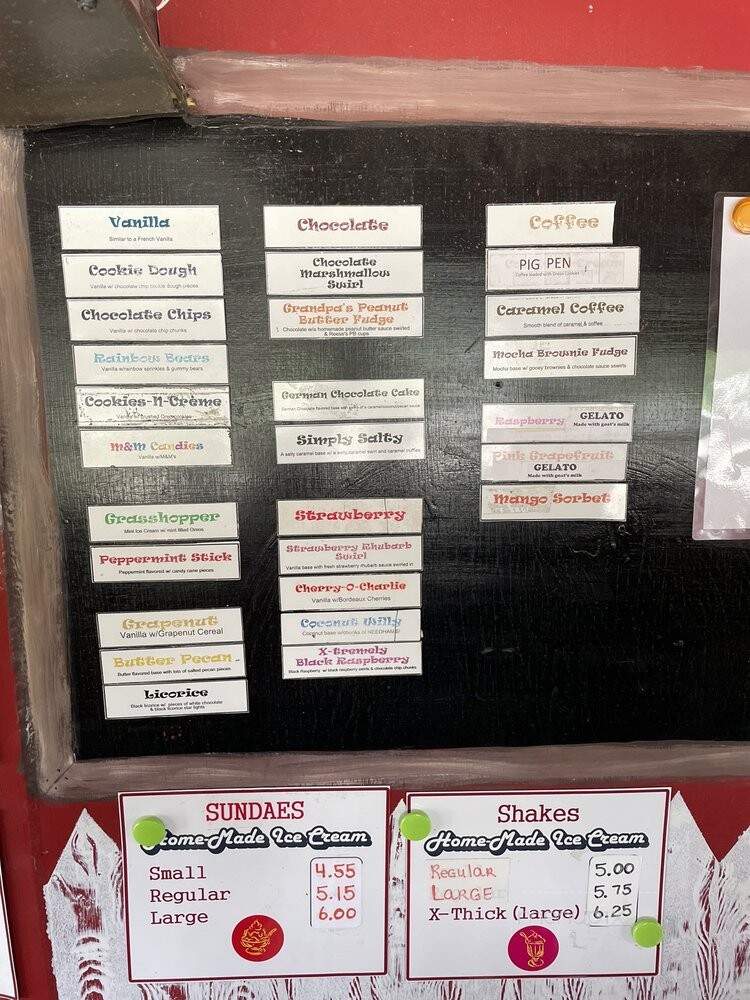 Vanilla
Similar to a French Vanilla
Cookie Dough
Vanilla w/ chocolate chip cookie dough pieces
Chocolate Chips
Vanilla w/ chocolate chip chunks
Rainbow Bears
Vanilla w/rainbow sprinkles & gummy bears
Cookies-N-Crème
M&M Candies
Vanilla w/M&M's
Grasshopper
Mint Ice Cream w/ mint filled Oreos
Peppermint Stick
Peppermint flavored w/ candy cane pieces
Grapenut
Vanilla w/Grapenut Cereal
Butter Pecan
Butter flavored base with lots of salted pecan pieces
Licorice
Black licorice w/ pieces of white chocolate
& black licorice star lights
Chocolate
Chocolate
Marshmallow
Swirl
Grandpa's Peanut
Butter Fudge
Chocolate w/a homemade peanut butter sauce swirled
& Reese's PB cups
German Chocolate Cake
German Chocolate flavored base with
Simply Salty
A salty caramel base w/ a salty caramel swirl and caramel truffles
Strawberry
Strawberry Rhubarb
Swirl
Vanilla base with fresh strawberry rhubarb sauce swirled in
Cherry-O-Charlie
Vanilla w/Bordeaux Cherries
Coconut Willy
Coconut base w/chunks of NEEDHAMS!
X-tremely
Black Raspberry
Black Raspberry w/ black raspberry swirls & chocolate chip chunks
Coffee
PIG PEN
Coffee loaded with Oreo Cookies
Caramel Coffee
Smooth blend of caramel & coffee
Mocha Brownie Fudge
Mocha base w/ gooey brownies & chocolate sauce swirls
Raspberry GELATO
Made with goat's milk
Pink Grapefruit
GELATO
Made with goat's milk
Mango Sorbet
SUNDAES
Home-Made Ice Cream
Small 4.55
Regular 5.15
Large 6.00
Shakes
Home-Made Ice Cream
Regular 5.00
LARGE 5.75
X-Thick (large) 6.25